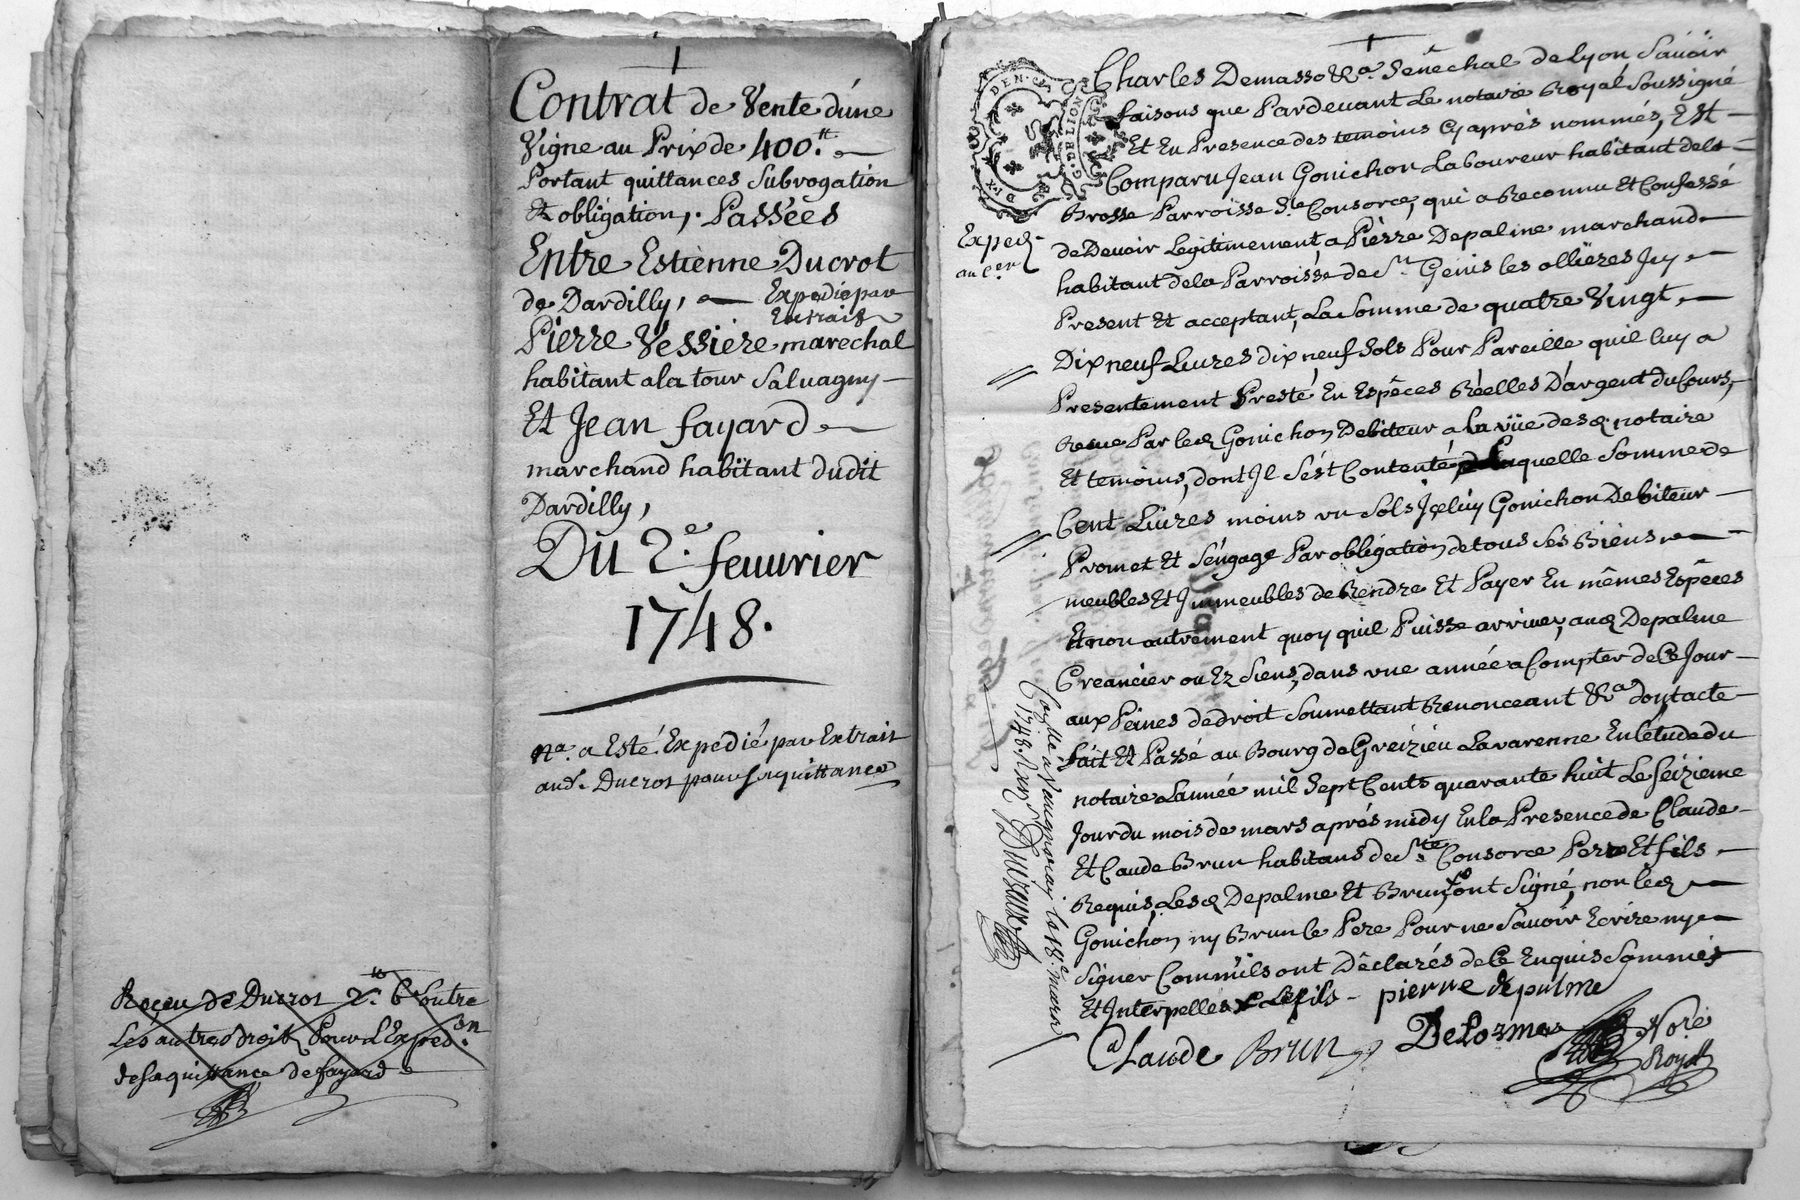 Contrat de Vente d'une
Vigne au Prix de 400.tt
Portant quittances Subrogation
Et obligation, Passées
Entre Estienne Ducrot
de Dardilly,
Expedié par
Extrait
Pierre Vessiere marechal
habitant a la tour Salvagny
Et Jean fayard
marchand habitant dudit
Dardilly,
Du 2.e feuurier
1748.
nª. a Esté Expedié par Extrait
aud. Ducrot pour sa quittance
Reçeu de Ducrot outre
Les autres droit Pour L'Exped.on
de la quittance de fayard
Charles Demasso &ª. Senêchal de Lyon Sauoir
faisons que Pardeuant Le notaire Royal Soussigné
Et En Presence des temoins Cy aprés nommés, Est
Comparu Jean Gonichon Laboureur habitant de la
Brosse Parroisse Ste. Consorce, qui a Reconnu Et Confessé
de Deuoir Legitimement, a Pierre Depalme marchand
habitant de la Parroisse de St. Genis les ollieres Icy
Present Et acceptant, La Somme de quatre Vingt
Dix neuf Liures dix neuf Sols Pour Pareille quil luy a
Presentement Presté En Espêces Réelles D'argent du Cours,
Receue Par led Gonichon Debiteur a la vüe desd. notaire
Et temoins, dont Il S'ést Contenté, Laquelle Somme de
Cent Liures moins un Sols Iceluy Gonichon Debiteur
Promet Et S'éngage Par obligation de tous Ses Biens
meubles Et Immeubles de Rendre Et Payer En mêmes Espêces
Et non autrement quoy quil Puisse arriuer, aud Depalme
Creancier ou Ez Siens, dans une année a Compter de Ce Jour
aux Peines de droit Soumettant Renonceant &ª dont acte
fait Et Passé au Bourg de Greizieu Lavarenne En L'étude du
notaire L'année mil Sept Cents quarante huit Le Seizieme
Jour du mois de mars aprés midy En la Presence de Claude
Et Claude Brun habitans de Ste. Consorce Pere Et fils
Requis, Lesd Depalme Et Brun ont Signé, non led
Gonichon ny Brun le Pere Pour ne Savoir Ecrire ny
Signer Comm'ils ont Déclarés de Ce Enquis Sommés
Et Interpellés Le fils - pierre depalme
Claude Brun Delorme Nore
Royal
G. DE LION
Exped
au Cer
Conllé a Vaugneray le 18.e mars
1748.